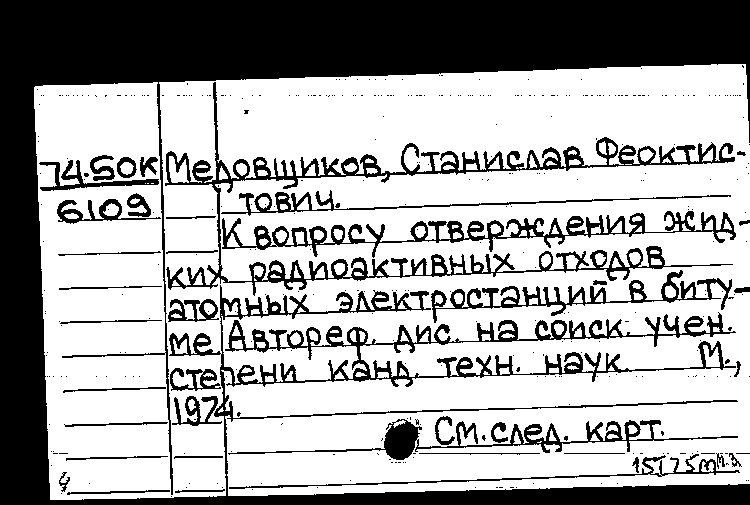 74.50К Медовщиков, Станислав Феоктис-
6109 тович.
К вопросу отверждения жид-
ких радиоактивных отходов
атомных электростанций в биту-
ме Автореф. дис. на соиск. учен.
степени канд. техн. наук. М.,
1974.
См. след. карт.